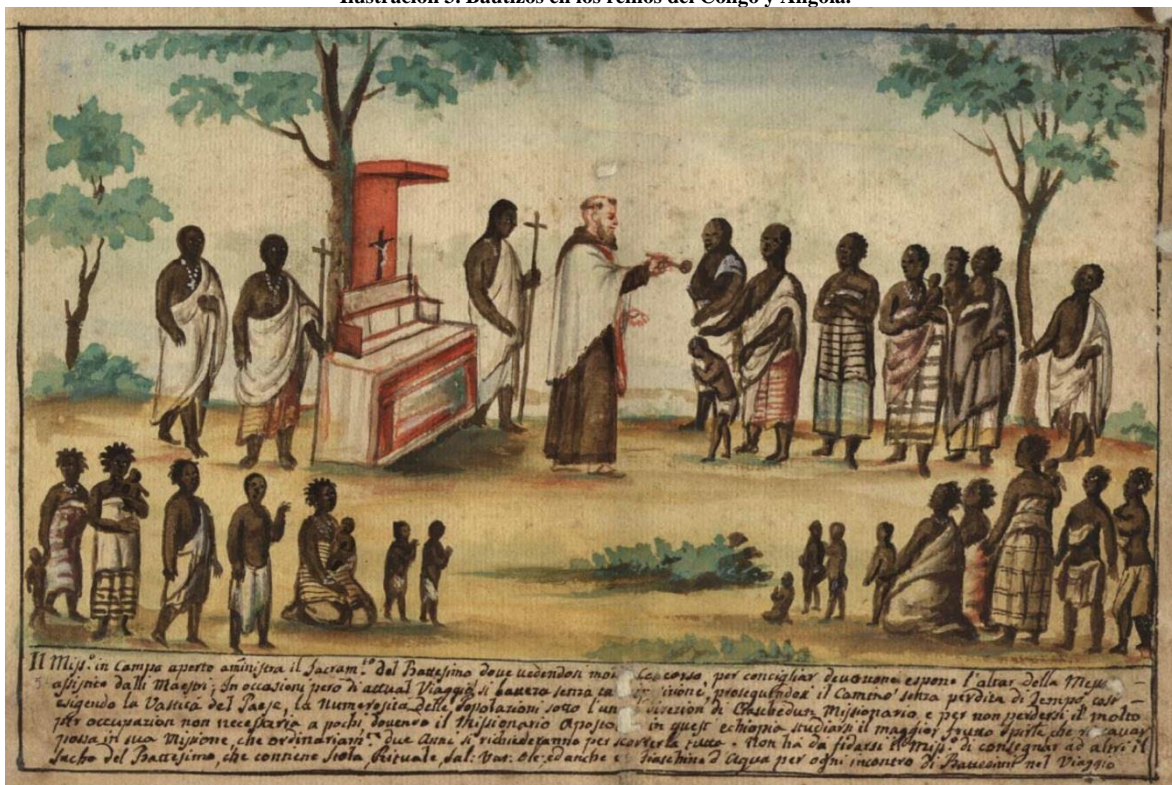 Ilustración 3. Bautizos en los reinos del Congo y Angola.
Il Miss.º in Campo aperto aministra il Sacram.to del Battesimo doue uedendosi concorso, per conciligiar deuotione espone l'altar della Messa
assistito dalli Maestri; In occasioni pero d'attual Viaggio si senza prosequendosi il Camino senza perdita di Tempo, cosi
esigendo la Vastità del Paese, la Numerosità delle Popolationi sotto l'un di Ciaschedun Missionario, e per non perdersi il molto
per occupazion non necessaria à pochi douendo il Missionario Aposto in quest echiopia studiarsi il maggior frutto che cauar
possa in sua Missione, che ordinariam.te due Anni si richiederanno per scorrerla tutta. Non ha da fidarsi il Miss.º di consegnar ad altri il
Sacho del Battesimo, che contiene Stola, Rituale, Sal: ed anche Fiaschino d'Aqua per ogni incontro di Battesimi nel Viaggio